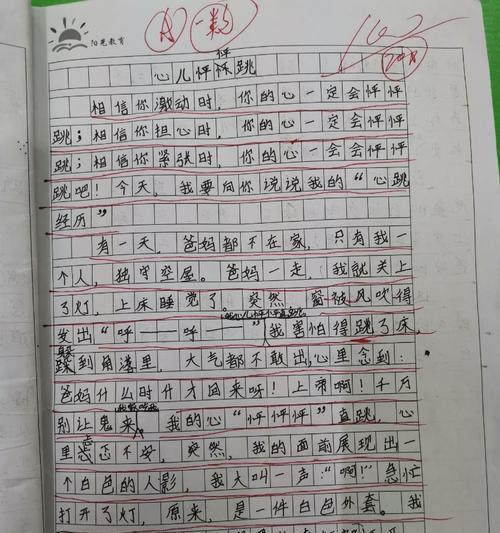 阳光教育
心儿怦怦跳
怦
相信你激动时，你的心一定会怦怦
跳；相信你担心时，你的心一定会怦怦
跳；相信你紧张时，你的心一会会怦怦
跳吧！今天，我要向你说说我的“心跳
经历”
有一天，爸妈都不在家，只有我一
个人，独守空屋。爸妈一走，我就关上
了灯，上床睡觉了，突然，窗被风吹得
发出“呼——呼——”我害怕得跳了床，
躲
到角落里，大气都不敢出，心里念到：
爸妈什么时什才回来呀！上帝啊！千万
别让鬼来，我的心“怦怦怦”直跳，心
里忐忑不安，突然，我的面前展现出一
个白色的人影，我大叫一声：“啊！”急忙
打开了灯，原来，是一件白色外套。我